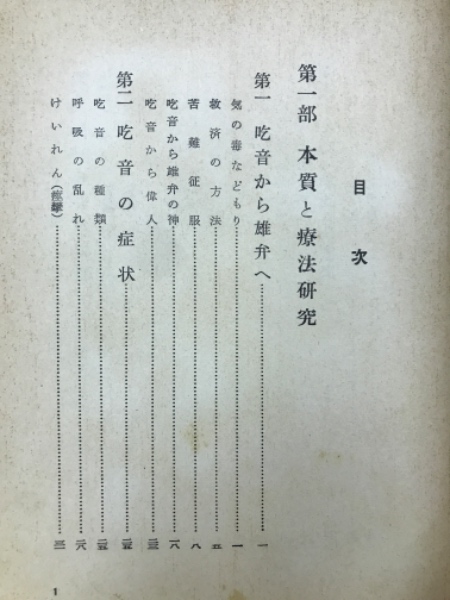 目次
第一部 本質と療法研究
第一 吃音から雄弁へ……一
気の毒などもり……一
救済の方法……五
苦難征服……八
吃音から雄弁の神……一八
吃音から偉人……二三
第二 吃音の症状……二五
吃音の種類……二五
呼吸の乱れ……二八
けいれん(痙攣)……三一
1